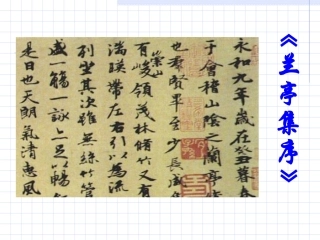 《兰亭集序》
永和九年歲在癸丑暮春
于會稽山陰之蘭亭
也羣賢畢至少長咸
有崇山峻領茂林脩竹又有
湍暎帶左右引以為流
列坐其次雖無絲竹管
盛一觴一詠上足以暢叙
是日也天朗氣清惠風